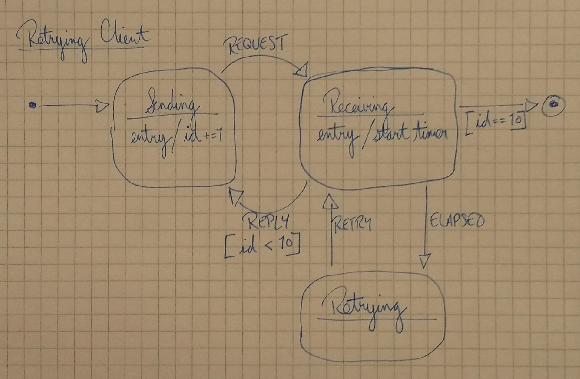 Retrying Client
REQUEST
Sending
entry/id +=1
Receiving
entry/start timer
[id==10]
REPLY
[id < 10]
RETRY
ELAPSED
Retrying